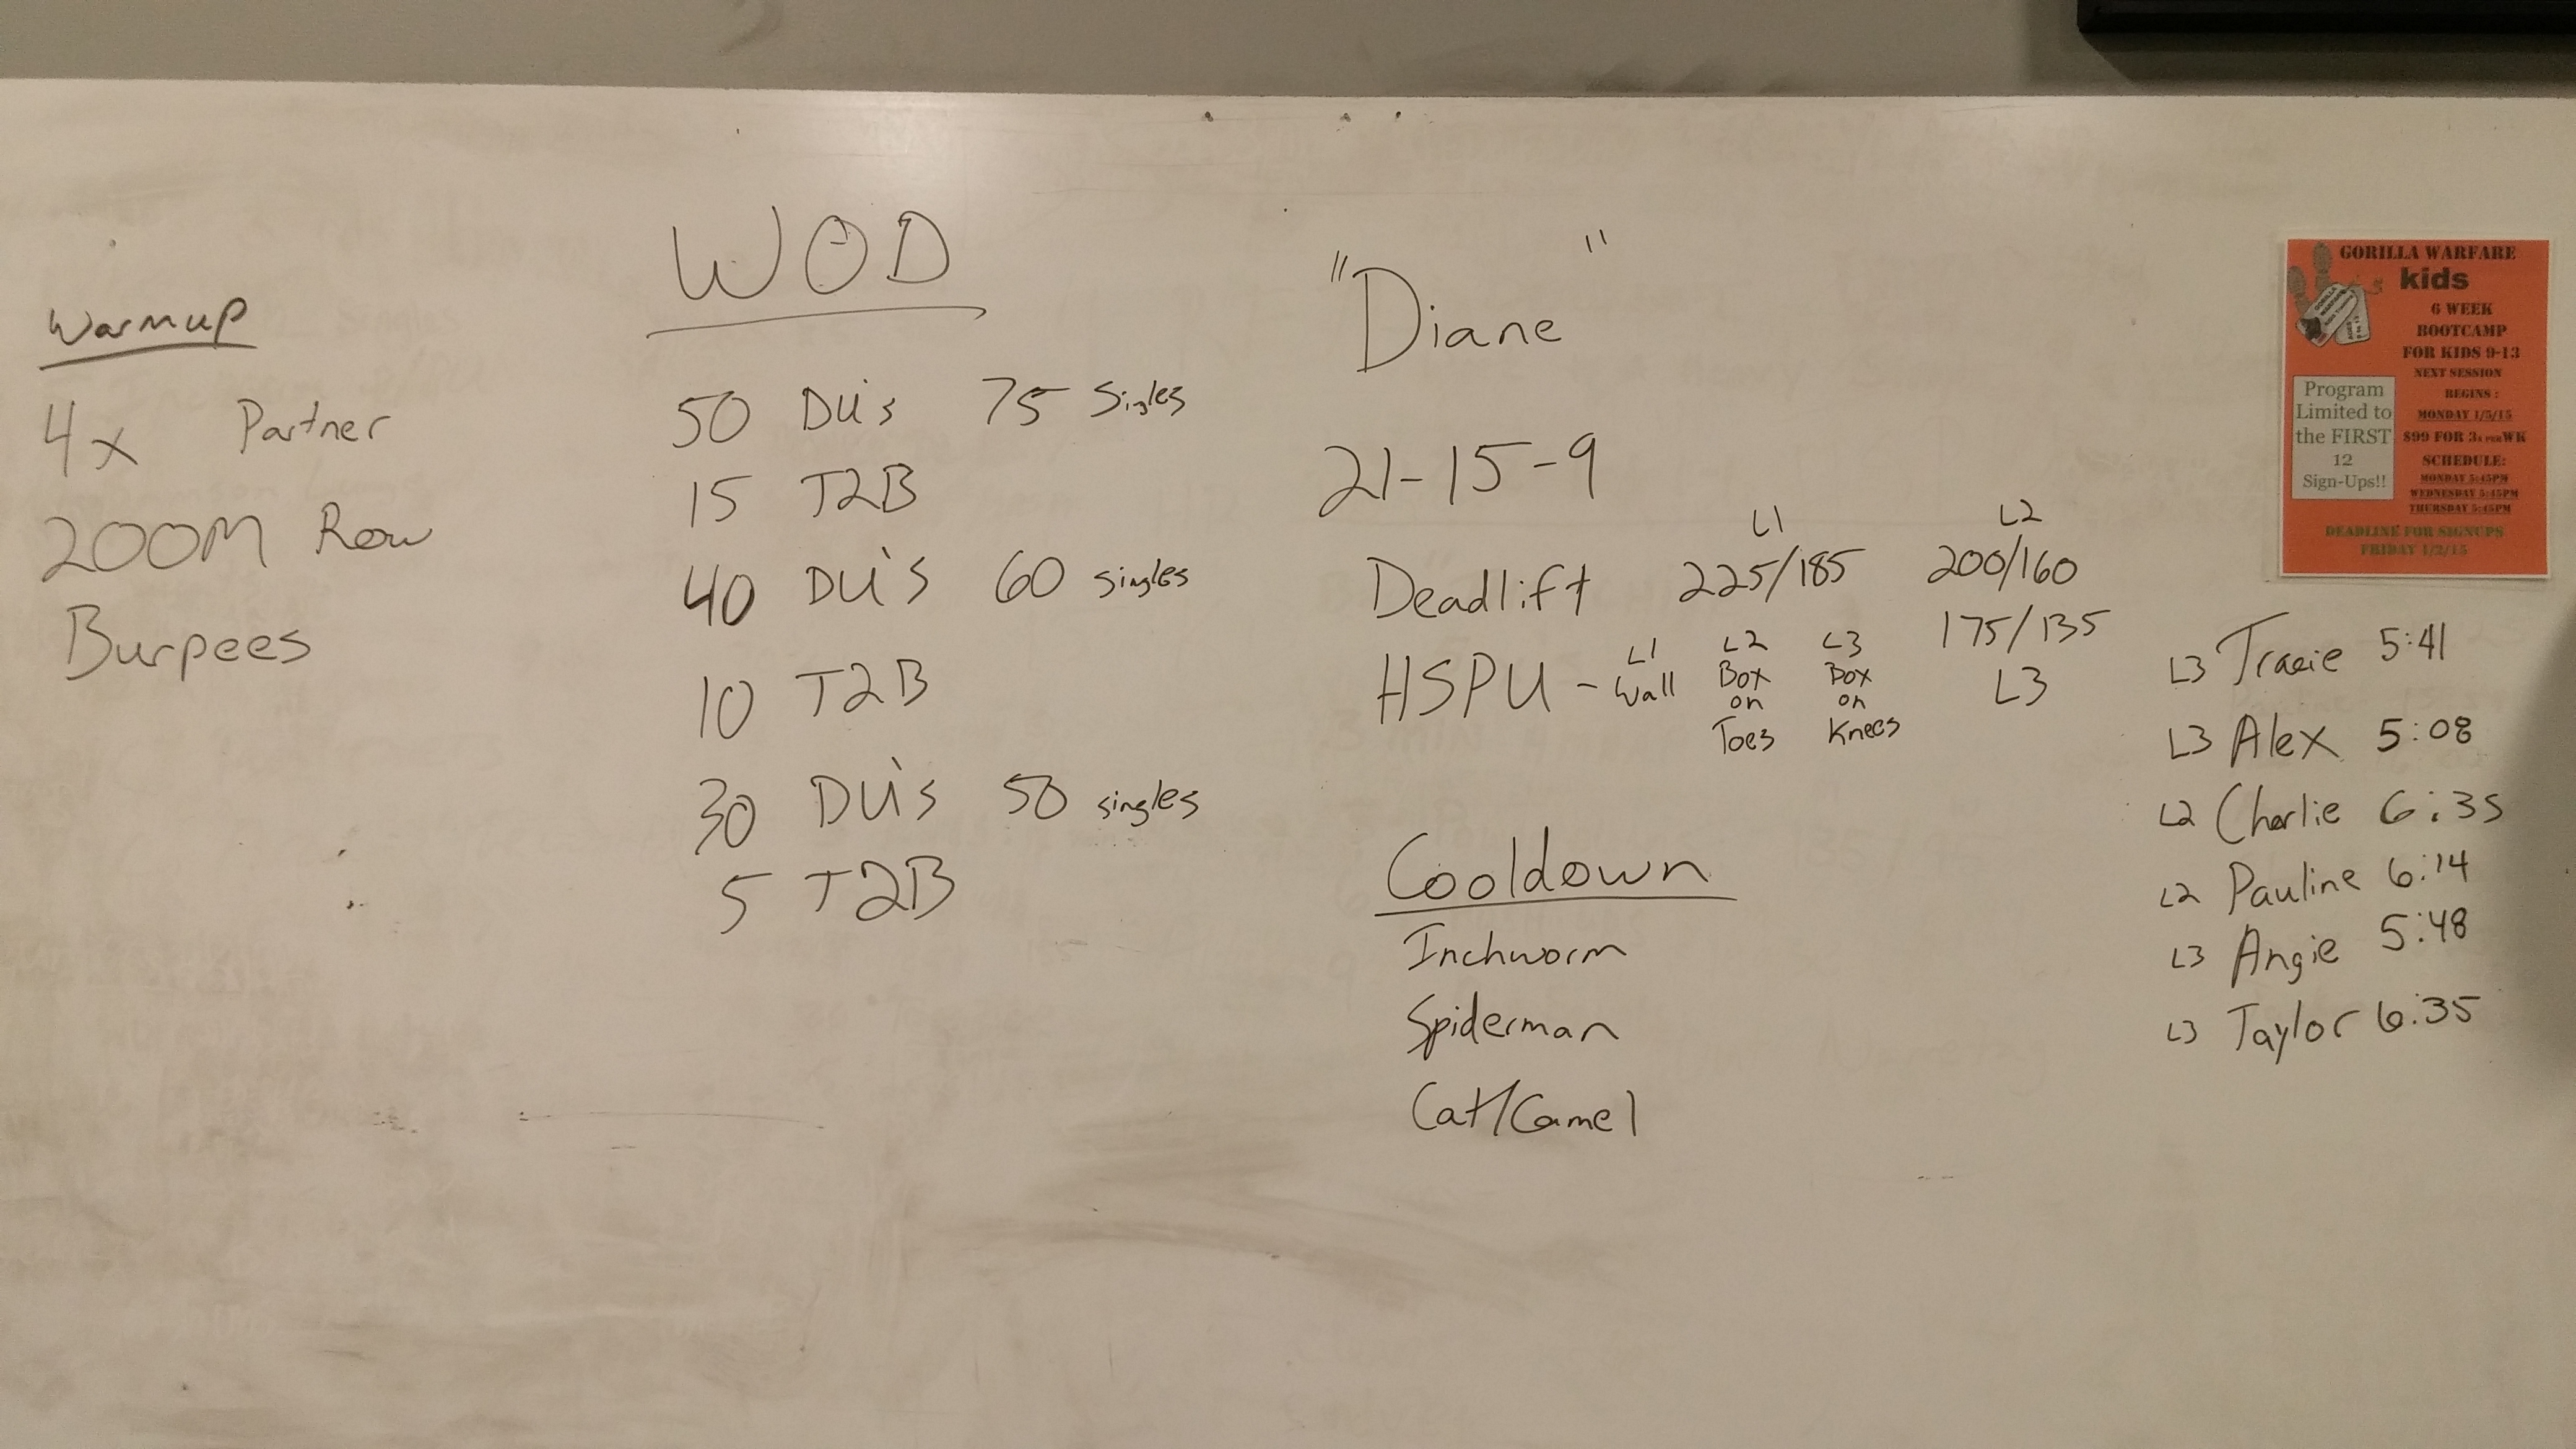 Warmup
4x Partner
200M Row
Burpees
WOD
50 DU's 75 Singles
15 T2B
40 DU's 60 singles
10 T2B
30 DU's 50 singles
5 T2B
"Diane"
21-15-9
L1 L2
Deadlift 225/185 200/160
175/135
L3
HSPU - L1 Wall L2 Box on Toes L3 Box on Knees
Cooldown
Inchworm
Spiderman
Cat/Camel
GORILLA WARFARE
kids
6 WEEK
BOOTCAMP
FOR KIDS 9-13
NEXT SESSION
BEGINS:
MONDAY 1/5/15
$99 FOR 3x PER WK
SCHEDULE:
MONDAY 5:45PM
WEDNESDAY 5:45PM
THURSDAY 5:45PM
Program
Limited to
the FIRST
12
Sign-Ups!!
DEADLINE FOR SIGNUPS
FRIDAY 1/2/15
L3 Tracie 5:41
L3 Alex 5:08
L2 Charlie 6:35
L2 Pauline 6:14
L3 Angie 5:48
L3 Taylor 6:35